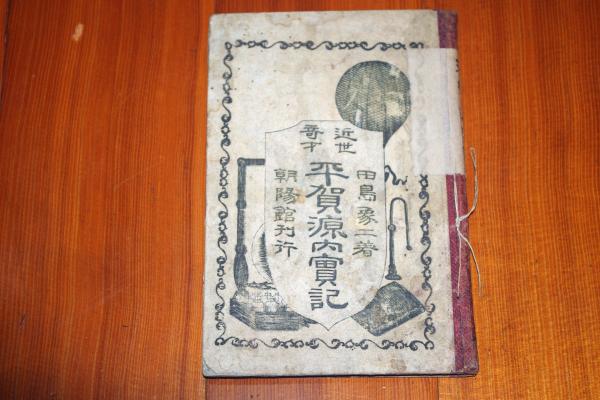 近世
奇才
田島象二著
平賀源内實記
朝陽館刊行